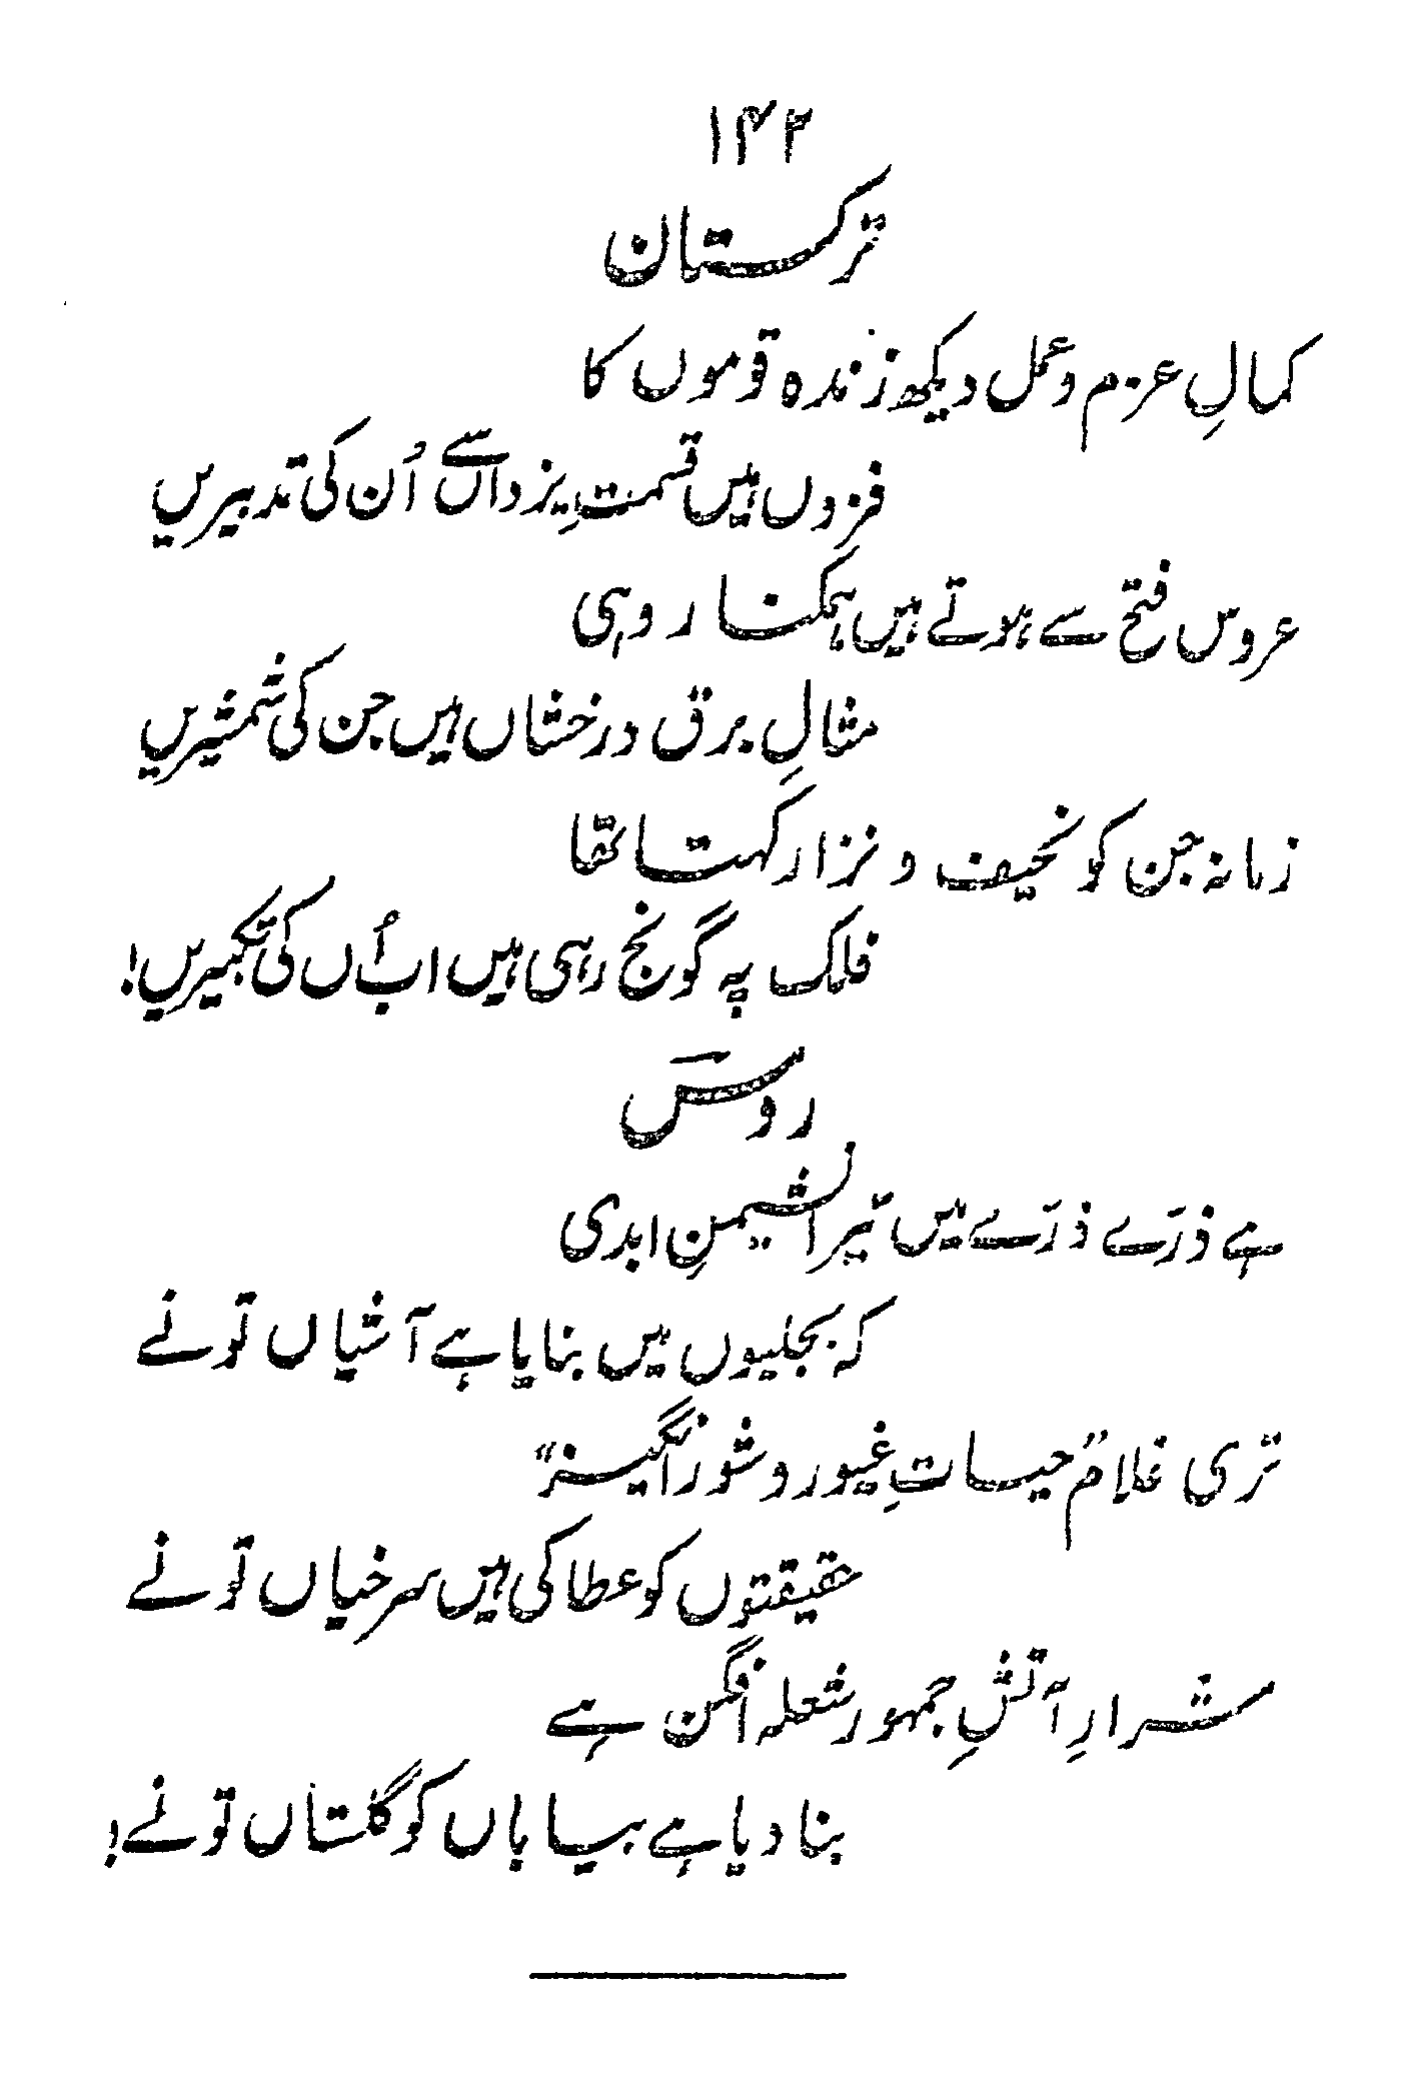 ۱۴۲
ترکستان
کمالِ عزم و عمل دیکھ زندہ قوموں کا
فزوں ہیں قسمتِ یزداں سے اُن کی تدبیریں
عروس فتح سے ہوتے ہیں ہمکنار وہی
مثالِ برق درخشاں ہیں جن کی شمشیریں
زمانہ جن کو نحیف و نزار کہتا تھا
فلک پہ گونج رہی ہیں اب اُں کی تکبیریں!
روس
ہے ذرّے ذرّے میں تیرا نشیمنِ ابدی
کہ بجلیوں میں بنایا ہے آشیاں تو نے
تری غلام "حیاتِ غیور و شور انگیز"
حقیقتوں کو عطا کی ہیں سرخیاں تو نے
شرارِ آتشِ جمہور شعلہ افگن ہے
بنا دیا ہے بیاباں کو گلستاں تو نے!